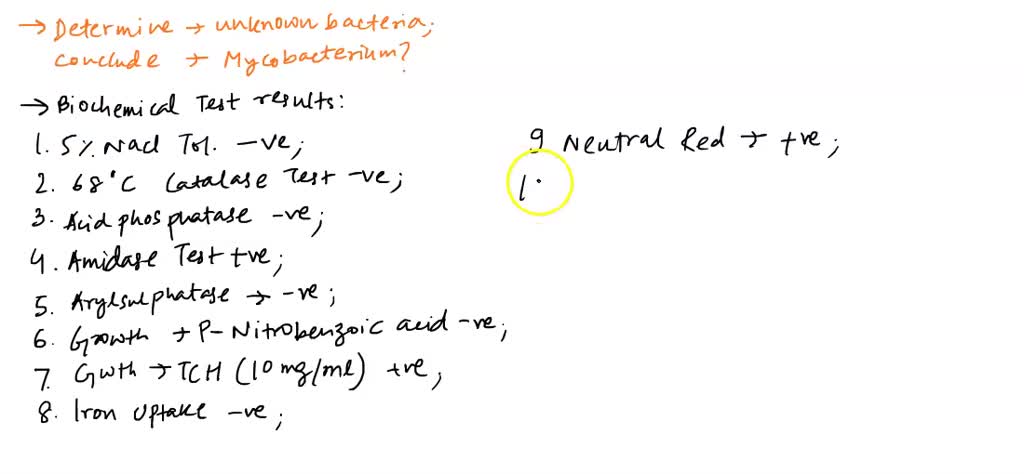 → Determine → unknown bacteria;
conclude → Mycobacterium?
→ Biochemical Test results:
1. 5% Nacl Tol. -ve;
2. 68°C Catalase Test -ve;
3. Acid phosphatase -ve;
4. Amidase Test +ve;
5. Arylsulphatase → -ve;
6. Growth → P-Nitrobenzoic acid -ve;
7. Gwth → TCH (10 mg/ml) +ve;
8. Iron uptake -ve;
9 Neutral Red → +ve;
1.